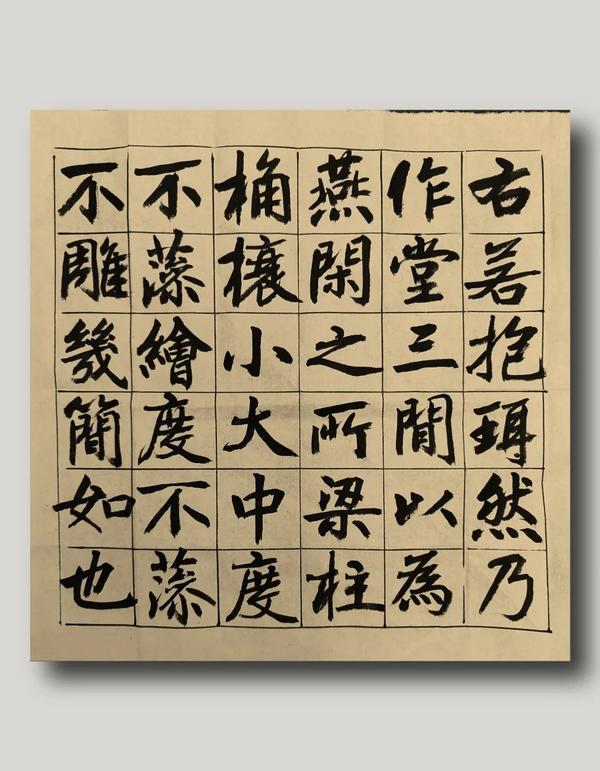 右若抱珥然乃
作堂三閒以為
燕閑之所梁柱
桷榱小大中度
不藻繪度不藻
不雕幾簡如也